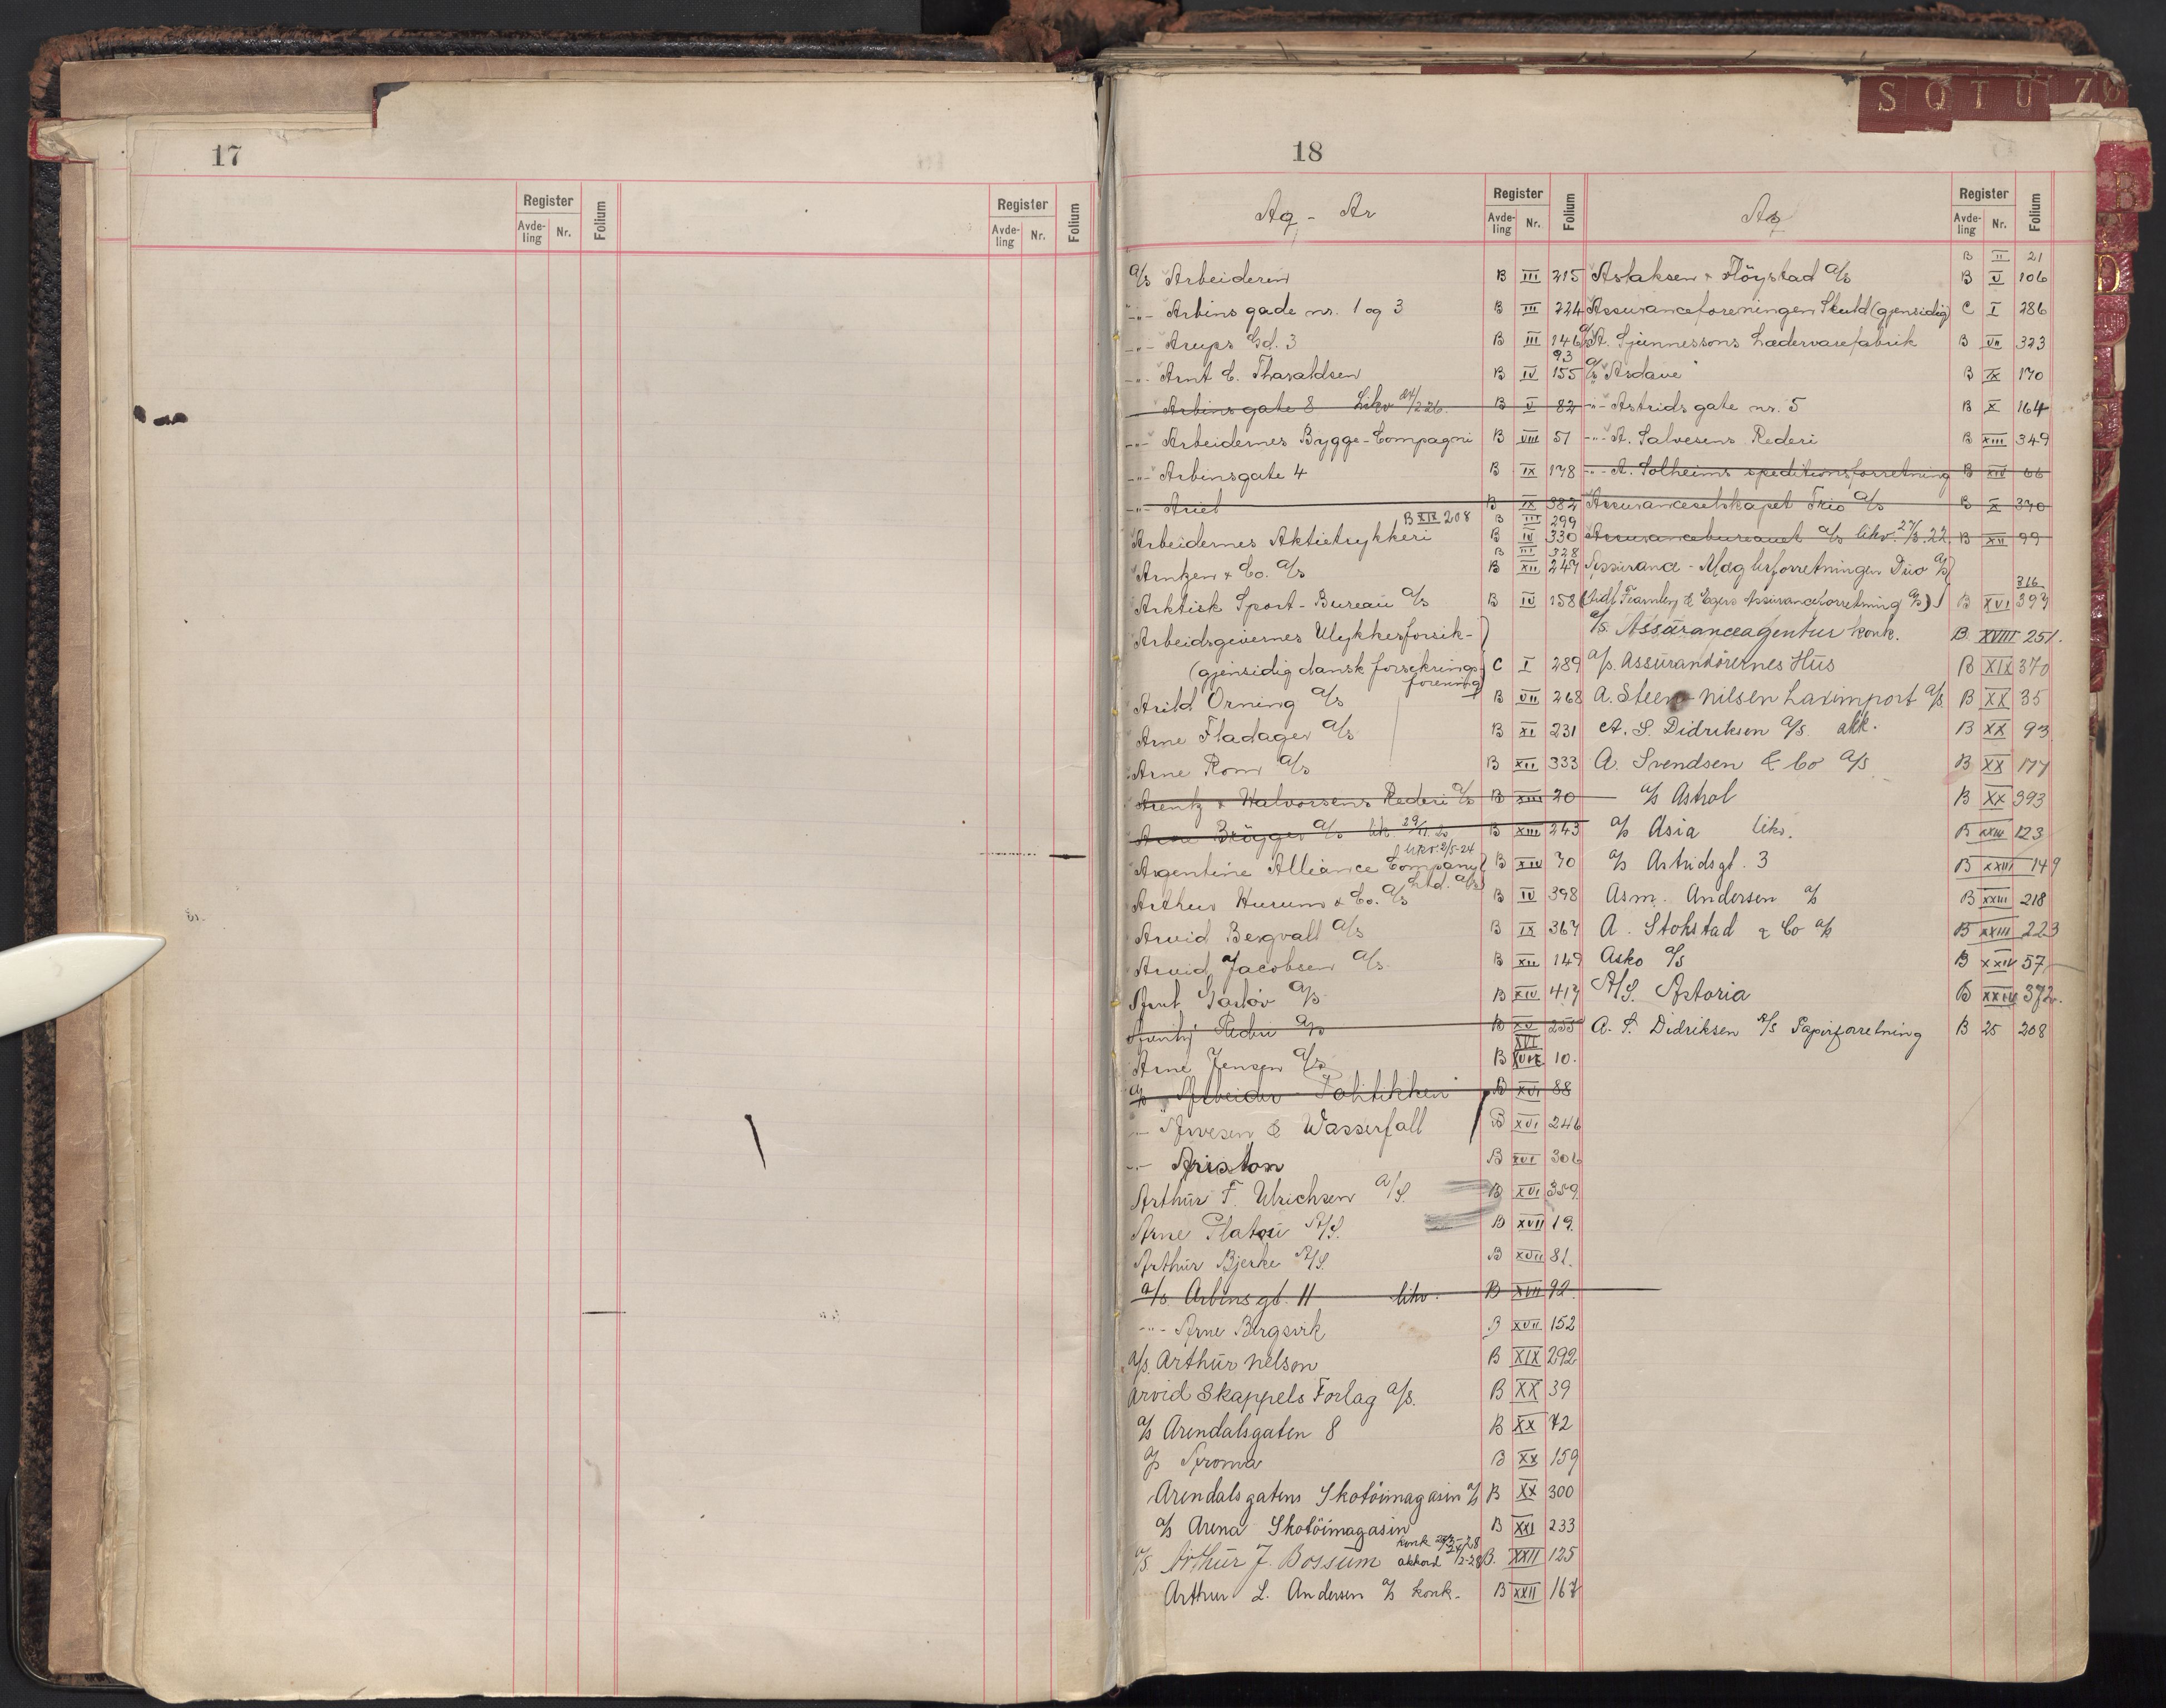 S Q T U Z Ø
B
D
17
Register
Avde-
ling
Nr.
Folium
Register
Avde-
ling
Nr.
Folium
18
Aq - Ar
Register
Avde-
ling
Nr.
Folium
A/S Arbeideren B III 215
-"- Arbins gade nr. 1 og 3 B III 224
-"- Arups Gd. 3 B III 146
93
-"- Arnt E. Tharaldsen B IV 155
Arbins gate 8 Likv 24/2 26. B V 82
-"- Arbeidernes Bygge-Compagni B VIII 51
-"- Arbinsgate 4 B IX 178
-"- Ariel B IX 382
B XIX 208 B III 299
Arbeidernes Aktietrykkeri B IV 330
B III 328
Arntzen & Co. A/S B XII 247
Arktisk Sport-Bureau A/S B IV 158
Arbeidsgivernes Ulykkesforsik-
(gjensidig dansk forsikrings-
forening) C I 289
Arild Orning A/S B VII 268
Arne Fladager A/S B XI 231
Arne Rom A/S B XII 333
Arentz & Halvorsens Rederi A/S B XIII 20
Arne Brögger A/S lik 29/11. 20 B XIII 243
likv. 2/5-24
Argentine Alliance Company
Ltd. A/S B XIV 70
Arthur Hurum & Co. A/S B IV 398
Arvid Bergvall A/S B IX 367
Arvid Jacobsen A/S B XII 149
Arnt A/S B XIV 417
Rederi A/S B XV 255
XVI
Arne Jensen A/S B XVII 10.
A/S Arbeider-Politikken B XVI 88
-"- Arvesen & Wasserfall B XVI 246
-"- Ariston B XVI 306
Arthur F. Ulrichsen A/S. B XVI 359.
Arne Platou A/S. B XVII 19.
Arthur Bjerke A/S. B XVII 81.
A/S. Arbins gt. 11 likv. B XVII 92.
-"- Arne Bergsvik B XVII 152
A/S. Arthur Nelson B XIX 292
Arvid Skappels Forlag A/S. B XX 39
A/S Arendalsgaten 8 B XX 72
A/S Aroma B XX 159
Arendalsgatens Skotöimagasin A/S B XX 300
A/S Arena Skotöimagasin B XXI 233
A/S. Arthur J. Bossum konk akkord B. XXII 125
Arthur L. Andersen A/S konk. B XXII 167
As
Register
Avde-
ling
Nr.
Folium
B II 21
Aslaksen & Flöystad A/S B V 106
Assuranceforeningen Skuld (gjensidig) C I 286
A/S A. Gjunnessons Lædervarefabrik B VII 323
A/S Asdave B IX 170
-"- Astrids gate nr. 5 B X 164
-"- A. Salvesens Rederi B XIII 349
-"- A. Solheims speditionsforretning B XIV 66
Assuranceselskapet Trio A/S B X 370
Assurancebureauet A/S likv. 27/3.22. B XII 99
Assurance-Mæglerforretningen Duo A/S
316
(tidl Fearnley & Egers Assuranceforretning A/S) B XVI 397
A/S. Assuranceagentur konk. B. XVIII 251.
A/S. Assurandörernes Hus B XIX 370
A. Steen-Nilsen Laximport A/S. B XX 35
A. S. Didriksen A/S. akk. B XX 93
A. Svendsen & Co A/S B XX 177
A/S Astrol B XX 393
A/S Asia likv. B XXIII 123
A/S Astridsgt. 3 B XXIII 149
Asm. Andersen A/S B XXIII 218
A. Stokstad & Co A/S B XXIII 223
Asko A/S B XXIV 57
A/S. Astoria B XXIV 372.
A. S. Didriksen A/S Papirforretning B 25 208